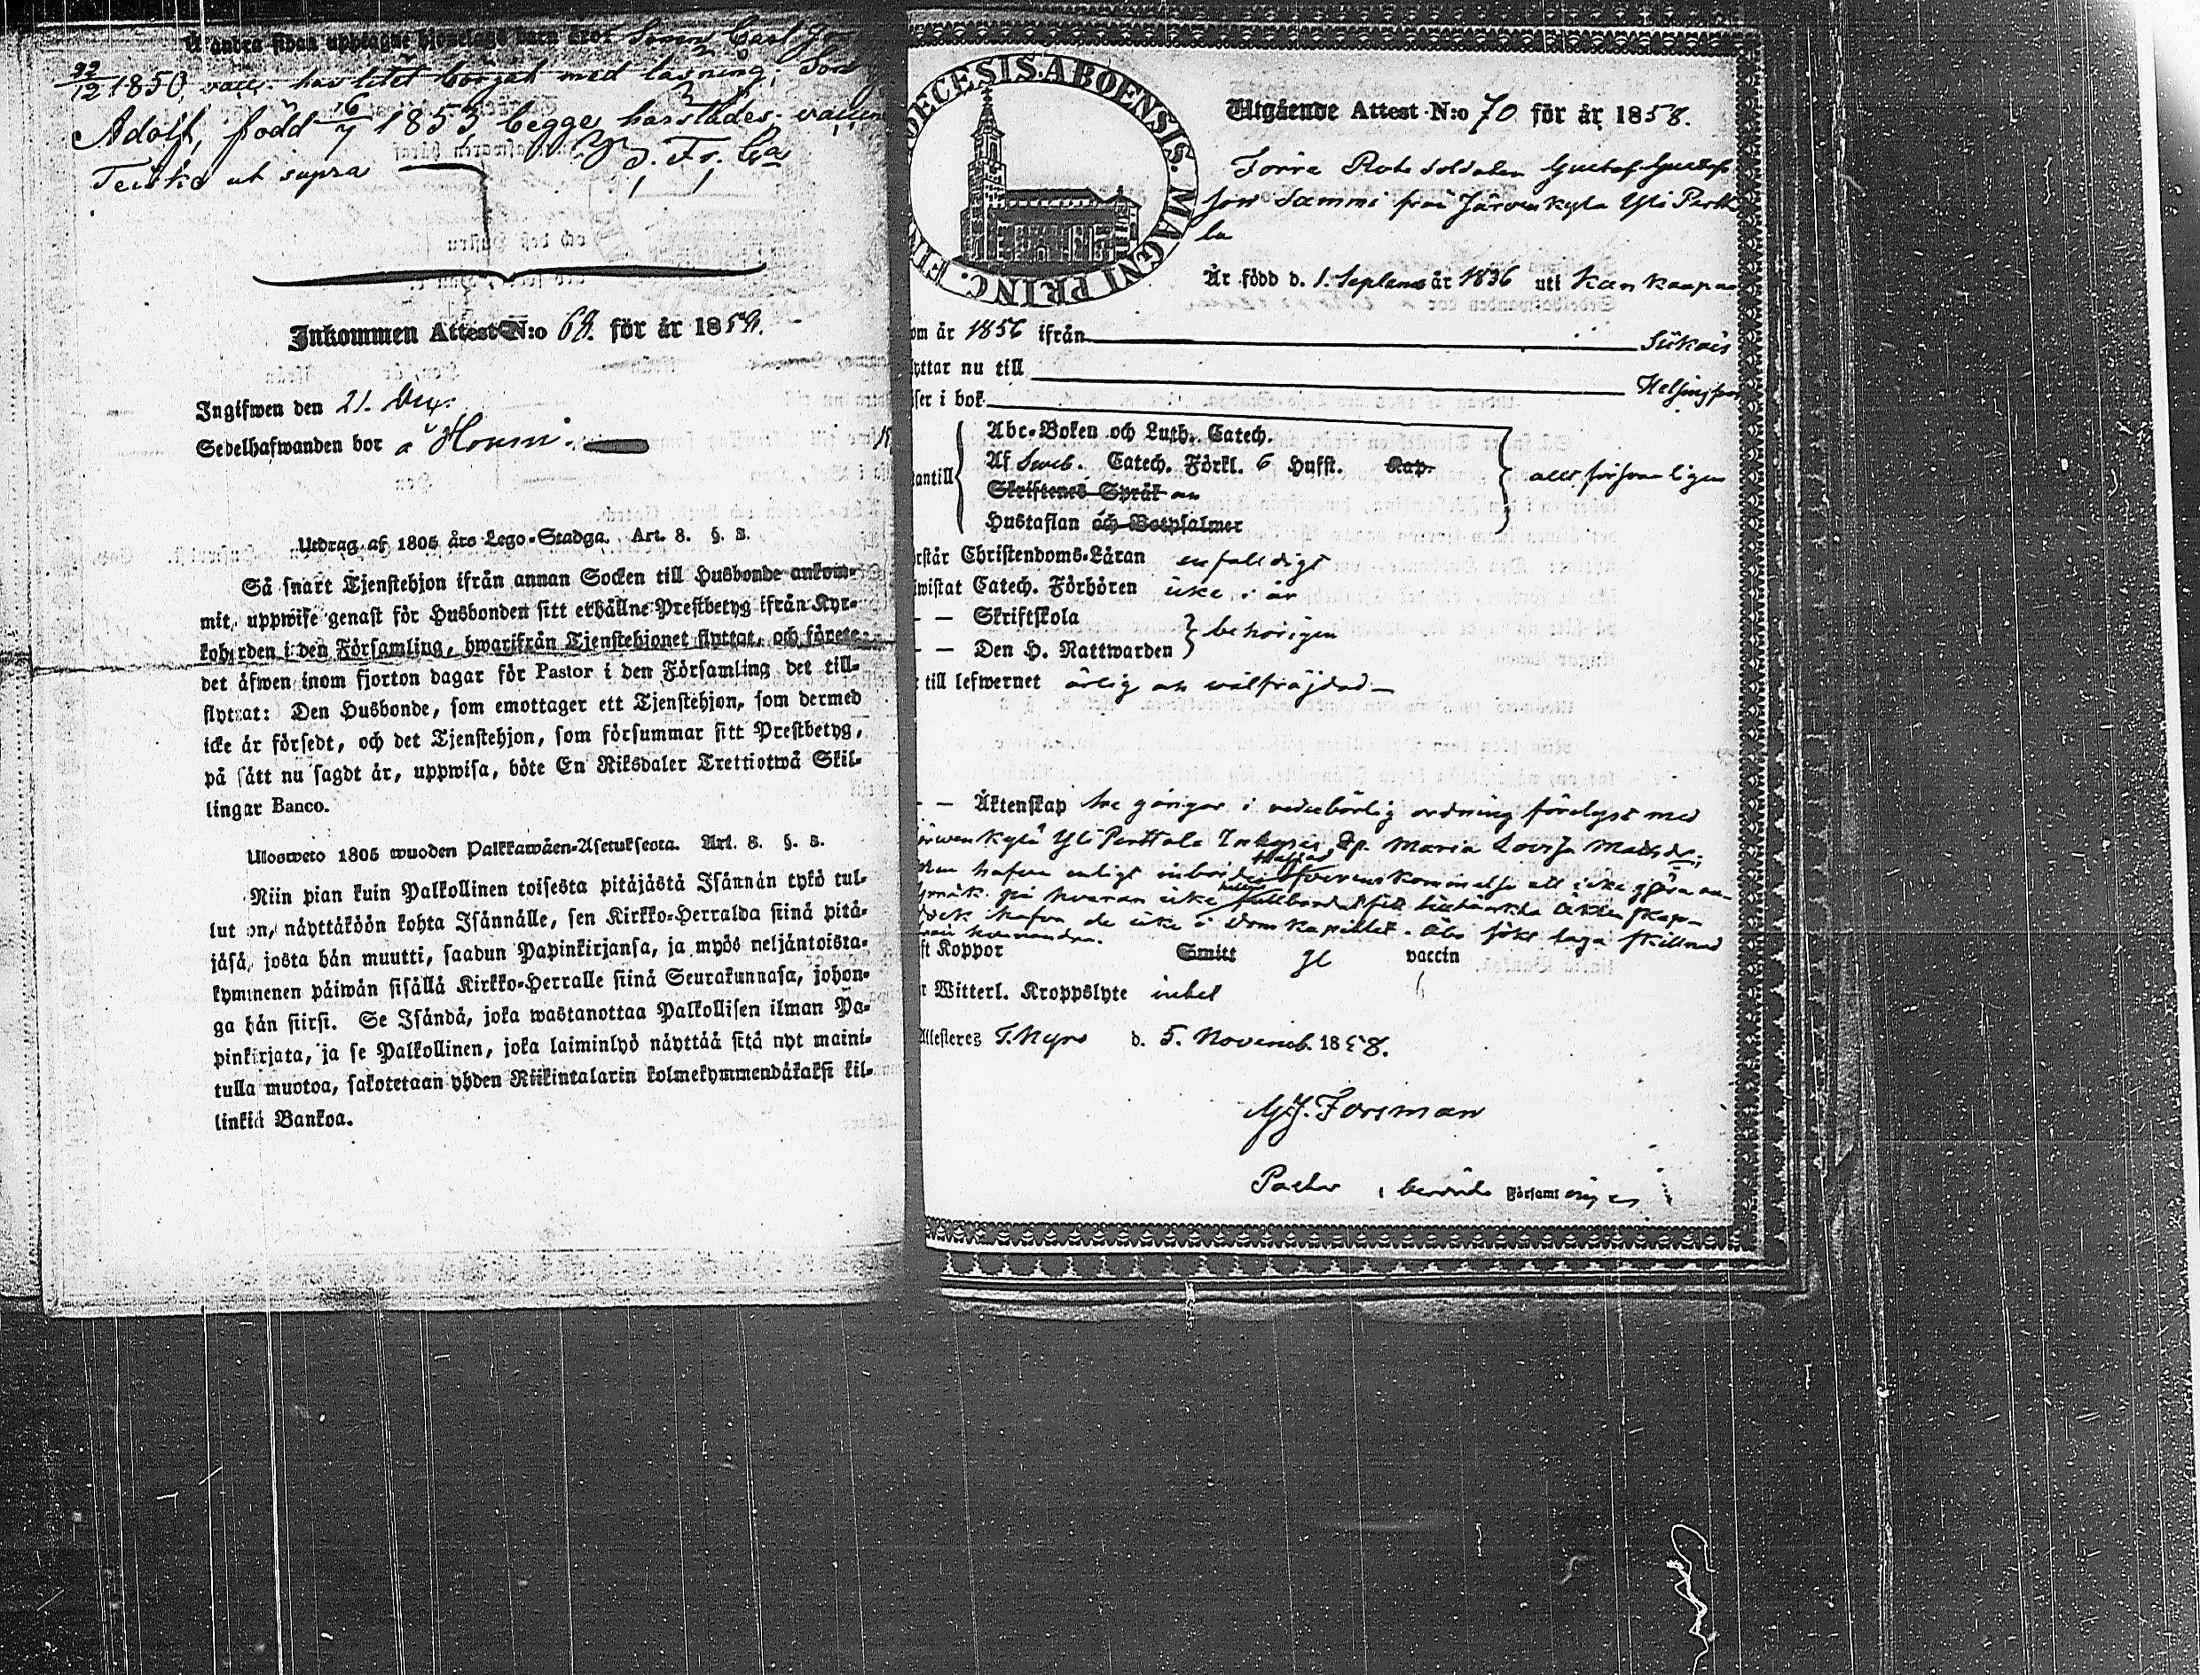 Å andra sidan upptagne hjonelags barn äro: Sonen Carl Jo
22/12 1850, vacc. har litet börjat med läsning; Son
Adolf, född 16/7 1853, begge härstädes. vaccin
Teisko ut supra
Inkommen Attest N:o 69. för år 1859.
Ingifwen den 21.
Sedelhafwanden bor å
Utdrag af 1805 års Lego-Stadga. Art. 8. §. 3.
Så snart Tjenstehjon ifrån annan Socken till Husbonde ankom-
mit, uppwise genast för Husbonden sitt erhållne Prestbetyg ifrån Kyr-
koherden i den Församling, hwarifrån Tjenstehjonet flyttat, och förete
det äfwen inom fjorton dagar för Pastor i den Församling det till-
flyttat: Den Husbonde, som emottager ett Tjenstehjon, som dermed
icke är försedt, och det Tjenstehjon, som försummar sitt Prestbetyg,
på sätt nu sagdt är, uppwisa, böte En Riksdaler Trettiotwå Skil-
lingar Banco.
Ulosweto 1805 wuoden Palkkawäen-Asetuksesta. Art. 8. §. 3.
Niin pian kuin Palkollinen toisesta pitäjästä Isännän tykö tul-
lut on, näyttäköön kohta Isännälle, sen Kirkko-Herralda siinä pitä-
jäsä, josta hän muutti, saadun Papinkirjansa, ja myös neljäntoista-
kymmenen päiwän sisällä Kirkko-Herralle siinä Seurakunnasa, johon-
ga hän siirsi. Se Isändä, joka wastanottaa Palkollisen ilman Pa-
pinkirjata, ja se Palkollinen, joka laiminlyö näyttää sitä nyt maini-
tulla muotoa, sakotetaan yhden Riikintalarin kolmekymmendäkaksi kil-
linkiä Bankoa.
DECESIS. ABOENSIS. MAGNI PRINC. FIN
Utgående Attest N:o 70 för år 1858.
Förre Rote soldaten Gustaf Gustafs
son Sammi från Järvenkylä Yli Pertt
la
Är född d. 1. Septemb år 1836 uti Kankaanpää
om år 1856 ifrån Siikais
yttar nu till Helsingfors
ser i bok
antill
Abc-Boken och Luth. Catech.
Af Sweb. Catech. Förkl. 6 Hufst. Kap.
Skriftenes Språk
Hustaflan och Botpsalmer
allt försvarligen
rstår Christendoms-Läran enfaldigt
wistat Catech. Förhören icke i år
— — Skriftskola
— — Den H. Nattwarden
behörigen
till lefwernet ärlig och wälfräjdad —
— — Äktenskap tre gånger i wederbörlig ordning förelyst med
ärwenkylä Yli Perttala Inhyses Dp. Maria Lovisa Matsdr;
Men hafva enligt inbördes öfverenskommelse att icke göra an-
språk på hvaran icke fullbordat sitt tilltänkta äktenskap
dock hafva de icke i Domkapitlet i Åbo sökt taga skillnad
från hvarandra.
ft Koppor Smitt gl vaccin
r Witterl. Kroppslyte intet
Attesteres T.Kyro d. 5. Novemb. 1858.
G.J. Forsman
Pastor i berörde Församlingen